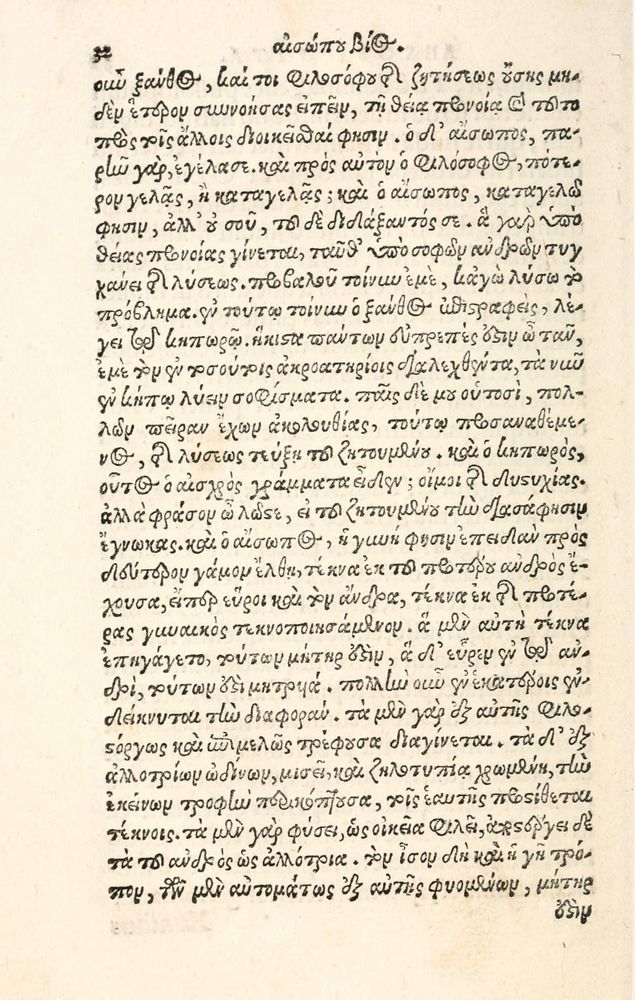 32 αἰσώπου βίος.
οὖν ξάνθος, καί τοι φιλοσόφου τῆς ζητήσεως οὔσης μη-
δὲν ἕτερον συννοήσας εἰπεῖν, τῇ θεία προνοία καὶ τοῦτο
πρὸς τοῖς ἄλλοις διοικεῖσθαί φησιν. ὁ δ' αἴσωπος, πα-
ρὼν γὰρ, ἐγέλασε. καὶ πρὸς αὐτὸν ὁ φιλόσοφος, πότε-
ρον γελᾷς, ἢ καταγελᾷς; καὶ ὁ αἴσωπος, καταγελῶ
φησιν, ἀλλ' οὐ σοῦ, τοῦ δὲ διδάξαντός σε. ἃ γὰρ ὑπὸ
θείας προνοίας γίνεται, ταῦθ' ὑπὸ σοφῶν ἀνδρῶν τυγ
χάνει τῆς λύσεως. προβαλοῦ τοίνυν ἐμὲ, κᾀγὼ λύσω τὸ
πρόβλημα. ἐν τούτῳ τοίνυν ὁ ξάνθος ἐπιστραφεὶς, λέ-
γει τῷ κηπωρῷ. ἥκιστα πάντων εὐπρεπές ἐστιν ὦ τᾶν,
ἐμὲ τὸν ἐν τοσούτοις ἀκροατηρίοις διαλεχθέντα, τὰ νῦν
ἐν κήπῳ λύειν σοφίσματα. παῖς δέ μου οὑτοσὶ, πολ-
λῶν πεῖραν ἔχων ἀκολουθίας, τούτῳ προσαναθέμε-
νος, τῆς λύσεως τεύξῃ τοῦ ζητουμένου. καὶ ὁ κηπωρὸς,
οὗτος ὁ αἰσχρὸς γράμματα εἶδεν; οἴμοι τῆς δυστυχίας.
ἀλλὰ φράσον ὦ λῷστε, εἰ τοῦ ζητουμένου τὴν διασάφησιν
ἔγνωκας. καὶ ὁ αἴσωπος, ἡ γυνὴ φησὶν ἐπειδὰν πρὸς
δεύτερον γάμον ἔλθῃ, τέκνα ἐκ τοῦ προτέρου ἀνδρὸς ἔ-
χουσα, εἴπερ εὕροι καὶ τὸν ἄνδρα, τέκνα ἐκ τῆς προτέ-
ρας γυναικὸς τεκνοποιησάμενον. ἃ μὲν αὐτὴ τέκνα
ἐπηγάγετο, τούτων μήτηρ ἐστὶν, ἃ δ' εὗρεν ἐν τῷ ἀν-
δρὶ, τούτων ἐστὶ μητρυιά. πολλὴν οὖν ἐν ἑκατέροις ἐν-
δείκνυται τὴν διαφοράν. τὰ μὲν γὰρ ἐξ αὐτῆς φιλο-
στόργως καὶ ἐπιμελῶς τρέφουσα διαγίνεται. τὰ δ' ἐξ
ἀλλοτρίων ὠδίνων, μισεῖ, καὶ ζηλοτυπίᾳ χρωμένη, τὴν
ἐκείνων τροφὴν περικόπτουσα, τοῖς ἑαυτῆς προστίθεται
τέκνοις. τὰ μὲν γὰρ φύσει, ὡς οἰκεῖα φιλεῖ, ἀποστέργει δὲ
τὰ τοῦ ἀνδρὸς ὡς ἀλλότρια. τὸν ἴσον δὴ καὶ ἡ γῆ τρό-
πον, τῶν μὲν αὐτομάτως ἐξ αὐτῆς φυομένων, μήτηρ
ἐστὶν